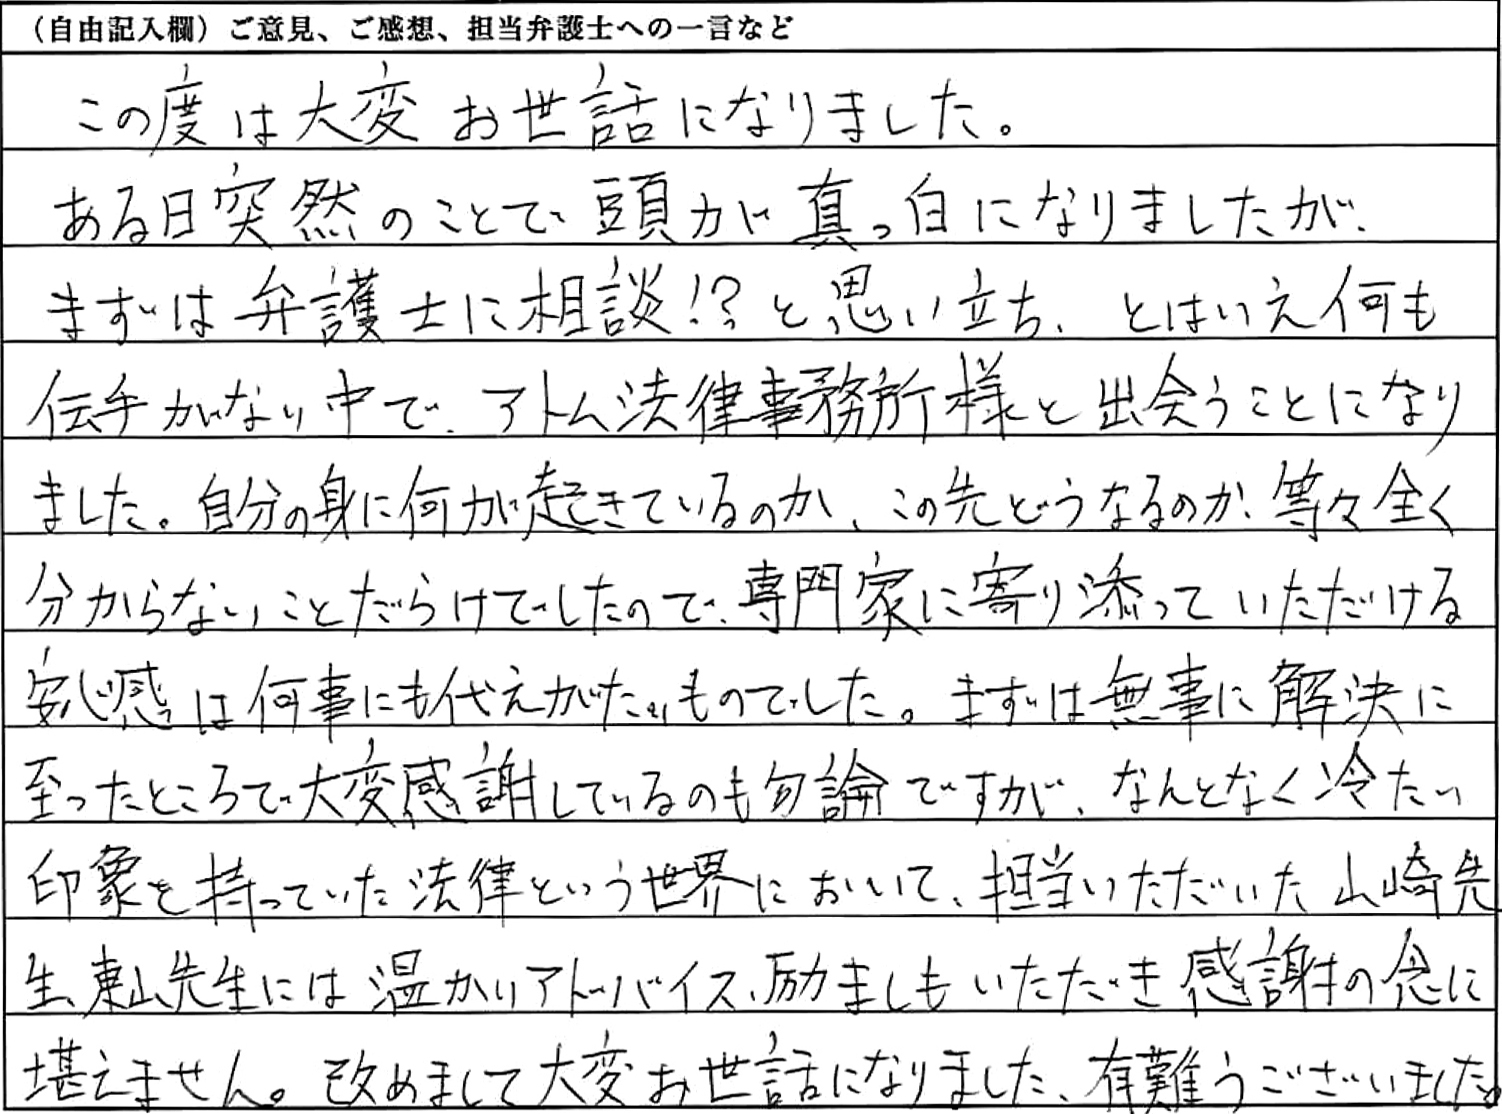 （自由記入欄）ご意見、ご感想、担当弁護士への一言など
この度は大変お世話になりました。
ある日突然のことで頭が真っ白になりましたが、
まずは弁護士に相談!?と思い立ち、とはいえ何も
伝手がない中で、アトム法律事務所様と出会うことになり
ました。自分の身に何が起きているのか、この先どうなるのか、等々全く
分からないことだらけでしたので、専門家に寄り添っていただける
安心感は何事にも代えがたいものでした。まずは無事に解決に
至ったところで大変感謝しているのも勿論ですが、なんとなく冷たい
印象を持っていた法律という世界において、担当いただいた山崎先
生、東山先生には温かいアドバイス、励ましもいただき感謝の念に
堪えません。改めまして大変お世話になりました、有難うございました。